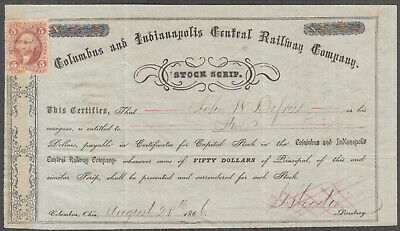 Columbus and Indianapolis Central Railway Company.
STOCK SCRIP.
This Certifies, That John W. Defrees or his
assigns, is entitled to
Dollars, payable in Certificates for Capital Stock in the Columbus and Indianapolis
Central Railway Company whenever sums of FIFTY DOLLARS of Principal, of this and
similar Scrip, shall be presented and surrendered for such Stock.
Columbus, Ohio, August 25th 1866.
Secretary.
5
5